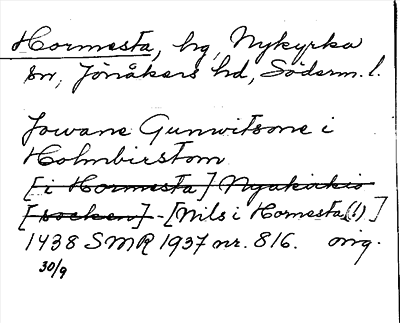 Hormesta, hg, Nykyrka
sn, Jönåkers hd, Söderm. l.
Jowane Gunwitsone i
Holmbirstom
[i Hormesta] Nyakirkio
[socken] - [Nils i Homesta(!)]
1438 SMR 1937 nr. 816. orig.
30/9